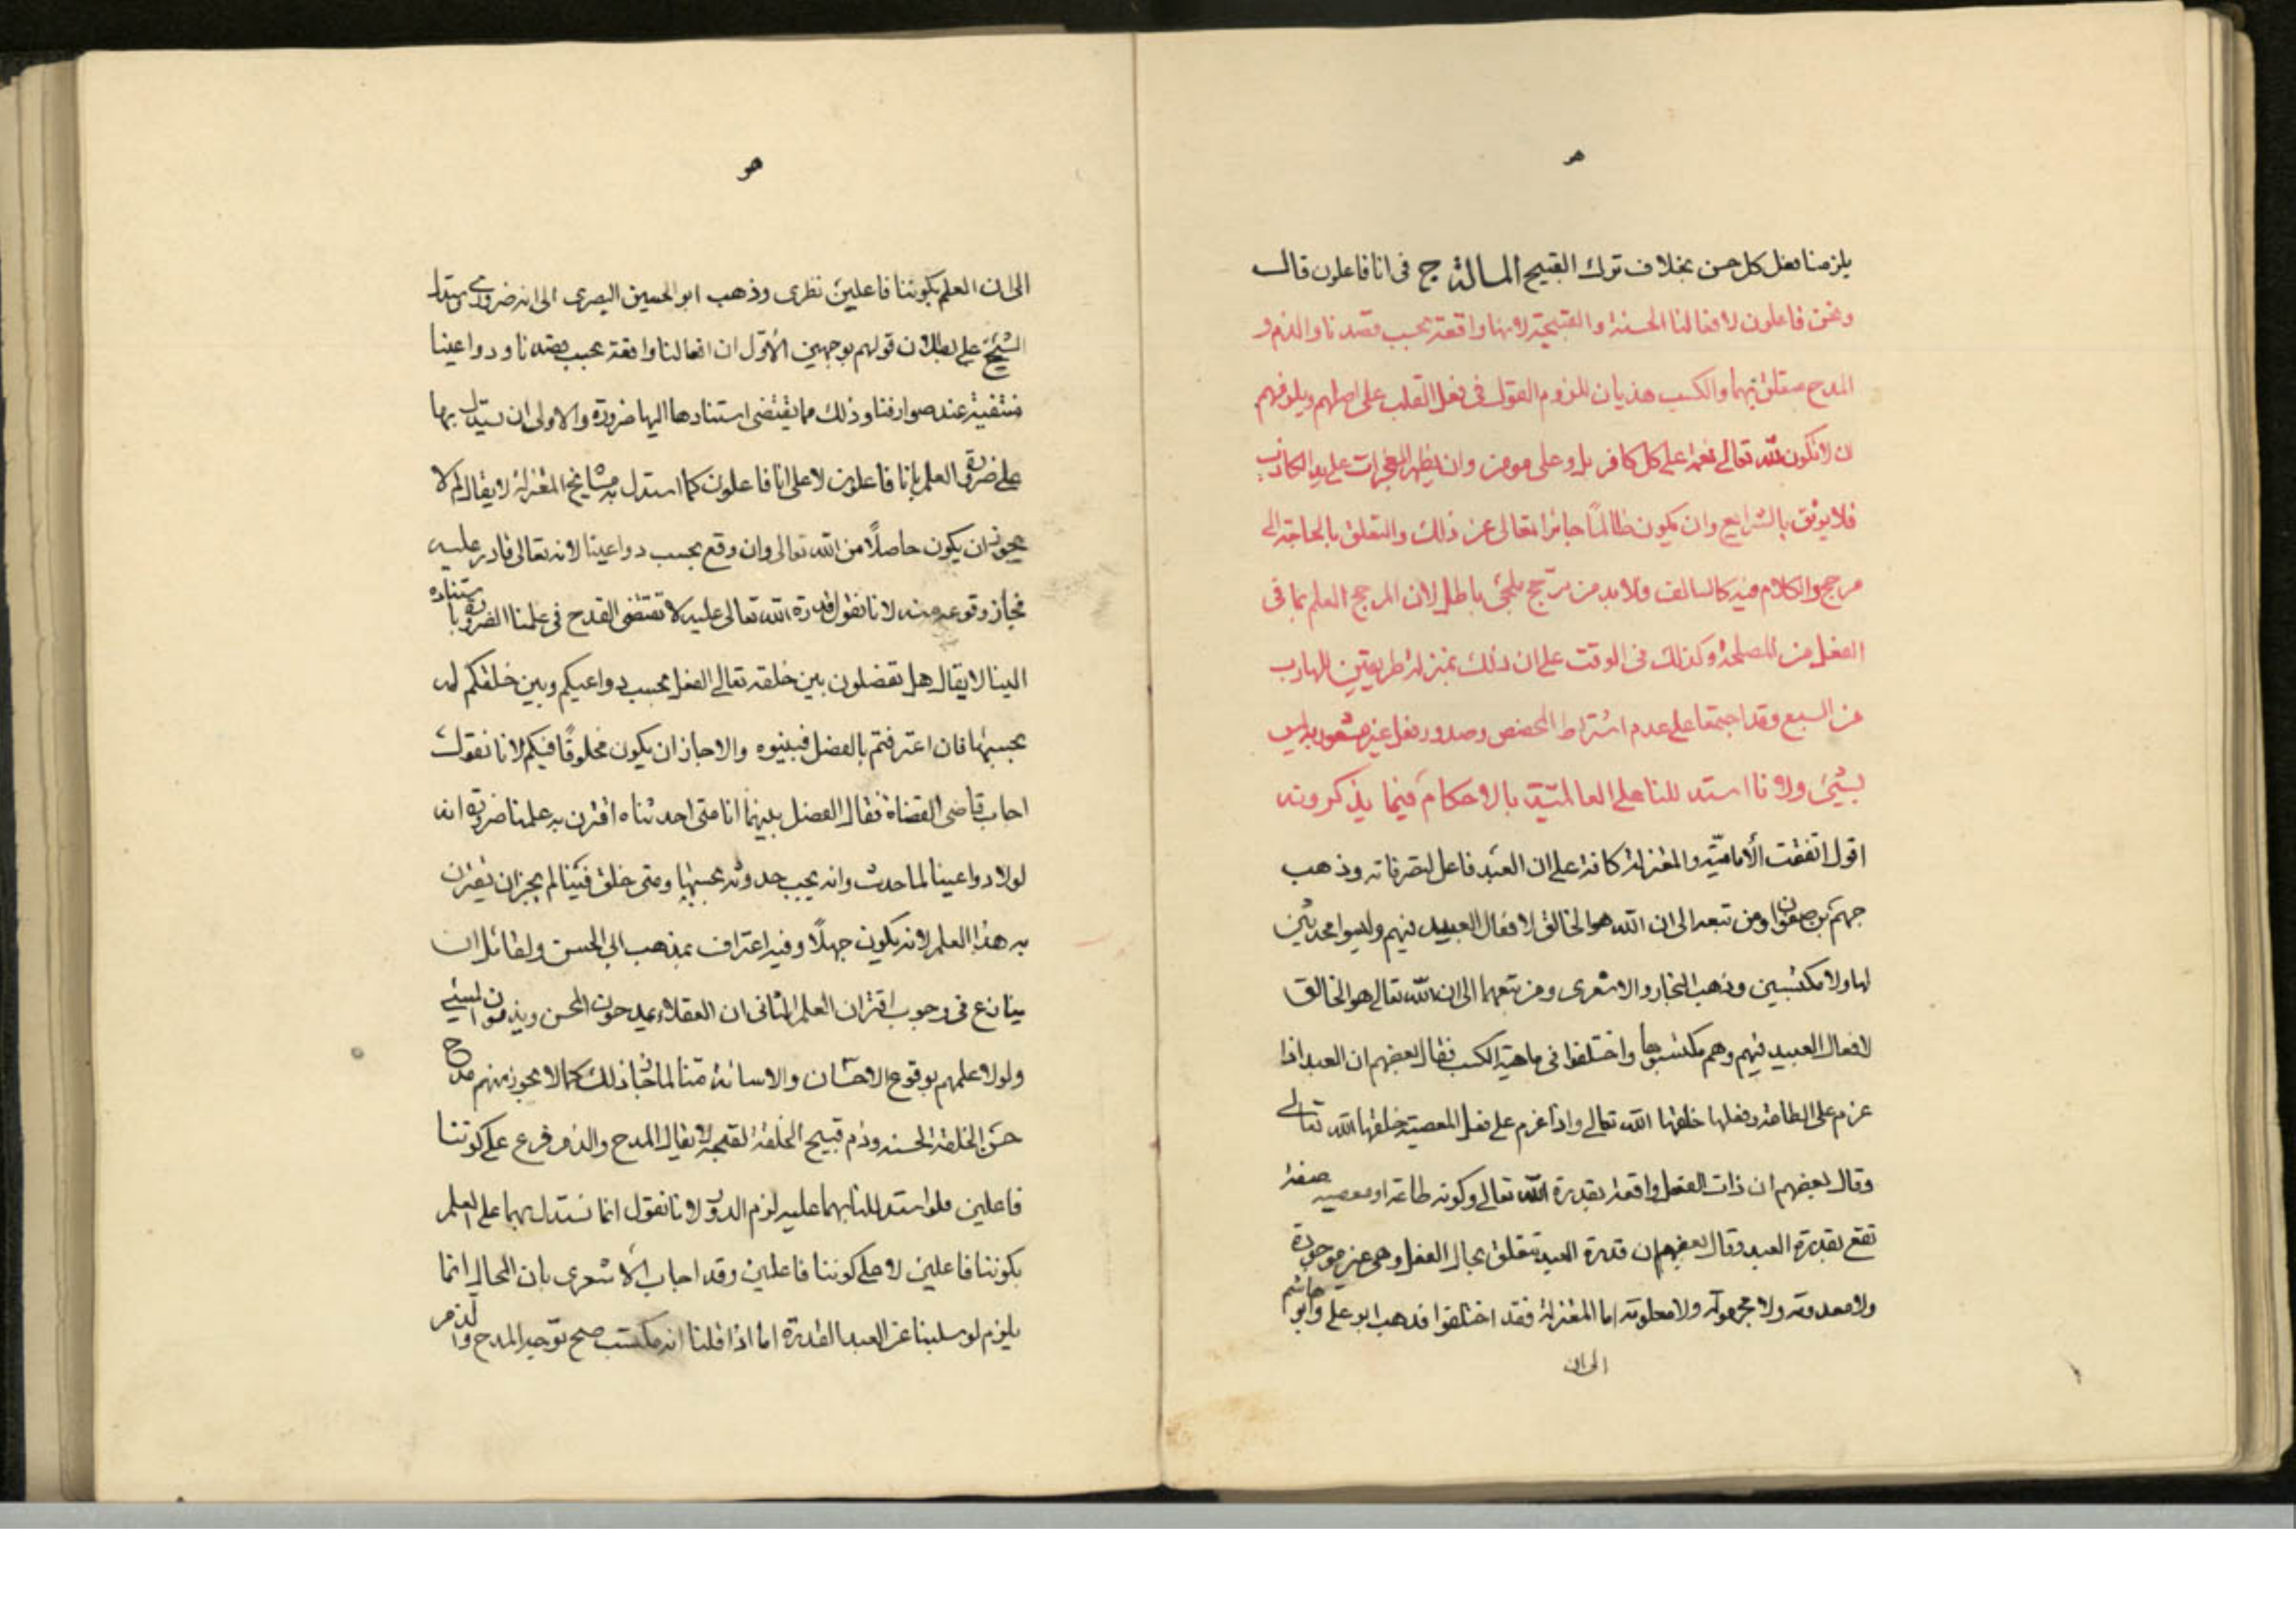 هو
يلزمنا فعل كل حسن بخلاف ترك القبيح المسالة ج فى انا فاعلون قال
ونحن فاعلون لافعالنا الحسنة والقبيحة لانها واقعة بحسب قصدنا والذم و
المدح متعلق بهما والكسب هذيان للزوم القول فى فعل القلب على اصلهم ويلزمهم
ان لا تكون لله تعالى نعمة على كل كافر بل وعلى مومن وان يظهر المعجزات على يد الكاذب
فلا يوثق بالشرايع وان يكون ظالمًا جائرا تعالى عن ذلك والتعلق بالحاجة الى
مرجح والكلام فيه كالسالف فلا بد من مرجح ملجئ باطل لان المرجح العلم بما فى
الفعل من المصلحة وكذلك فى الوقت على ان ذلك بمنزلة طريقين للهارب
من السبع وقد اجتمعا على عدم اشتراط المخصص وصدور فعل غير مشعور به ليس
بشيئ ولانا استدللنا على العالمية بالاحكام فيما يذكرونه
اقول اتفقت الأمامية والمعتزلة كافة على ان العبد فاعل لتصرفاته وذهب
جهم بن صفوان ومن تبعه الى ان الله هو الخالق لافعال العبيد فيهم وليسوا محدثين
لها ولا مكتسبين وذهب النجار والاشعرى ومن تبعهما الى ان الله تعالى هو الخالق
لافعال العبيد فيهم وهم مكتسبوها واختلفوا فى ماهية الكسب فقال بعضهم ان العبد اذا
عزم على الطاعة وفعلها خلقها الله تعالى واذا عزم على فعل المعصية خلقها الله تعالى
وقال بعضهم ان ذات الفعل واقعة بقدرة الله تعالى وكونه طاعة او معصية صفة
تقع بقدرة العبد وقال بعضهم ان قدرة العبد تتعلق بحال الفعل وهى غير موجودة
ولا معدومة ولا مجهولة ولا معلومة اما المعتزلة فقد اختلفوا فذهب ابو على وابو هاشم
الى ان
هو
الى ان العلم بكوننا فاعلين نظرى وذهب ابو الحسين البصرى الى انه ضرورى واستدل
الشيخ على بطلان قولهم بوجهين الأول ان افعالنا واقعة بحسب قصدنا ودواعينا
منتفية عند صوارفنا وذلك مما يقتضى استنادها الينا ضرورة والاولى ان يستدل بها
على ضرورة العلم بانا فاعلون لا على انا فاعلون كما استدل به مشايخ المعتزلة لا يقال لم لا
يجوز ان يكون حاصلًا من الله تعالى وان وقع بحسب دواعينا لانه تعالى قادر عليه
فجاز وقوعه منه لانا نقول قدرة الله تعالى عليه لا تقتضى القدح فى علمنا الضرورى باستناده
الينا لا يقال هل تفصلون بين خلقه تعالى الفعل بحسب دواعيكم وبين خلقكم له
بحسبها فان اعترفتم بالفصل فبينوه والا جاز ان يكون مخلوقًا فيكم لانا نقول
اجاب قاضى القضاة فقال الفصل بينهما انا متى احدثناه اقترن به علمنا ضرورة انه
لولا دواعينا لما حدث وانه يجب حدوثه بحسبها ومتى خلق فينا لم يجز ان يقترن
به هذا العلم لانه يكون جهلًا وفيه اعتراف بمذهب ابى الحسن ولقائل ان
ينازع فى وجوب اقتران العلم الثانى ان العقلاء يمدحون المحسن ويذمون المسيئ
ولولا علمهم بوقوع الاحسان والاسائة منا لما جاز ذلك كما لا يجوز منهم مدح
حسن الخلقة الحسنه وذم قبيح الخلقة القبيحة لا يقال المدح والذم فرع على كوننا
فاعلين فلو استدللنا بهما عليه لزم الدور لانا نقول انما نستدل بهما على العلم
بكوننا فاعلين لا على كوننا فاعلين وقد اجاب الأشعرى بان المحال انما
يلزم لو سلبنا عن العبد القدرة اما اذا قلنا انه مكتسب صح توجيه المدح والذم